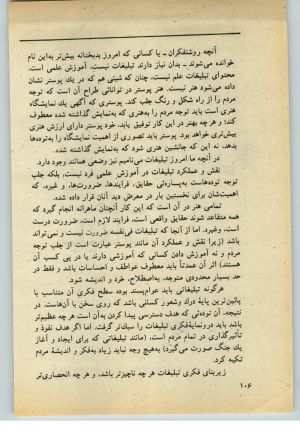 آنچه روشنفکران ـ یا کسانی که امروز بدبختانه بیش‌تر به‌این نام
خوانده می‌شوند ـ بدان نیاز دارند تبلیغات نیست، آموزش علمی است.
محتوای تبلیغات علم نیست، چنان که شیئی هم که در یك پوستر نشان
داده می‌شود هنر نیست. هنر پوستر در توانائی طراح آن است که توجه
مردم را از راه شکل و رنگ جلب کند. پوستری که آگهی یك نمایشگاه
هنری است باید توجه مردم را به‌هنری که به‌نمایش گذاشته شده معطوف
کند؛ و هر چه بهتر در این کار توفیق یابد، خود پوستر دارای ارزش هنری
بیش‌تری خواهد بود. پوستر باید تصوری از اهمیت نمایشگاه را به‌توده‌ها
بدهد، نه این که جانشین هنری شود که به‌نمایش گذاشته شده.
در آنچه ما امروز تبلیغات می‌نامیم نیز وضعی همانند وجود دارد.
نقش و عملکرد تبلیغات در آموزش علمی فرد نیست، بلکه جلب
توجه توده‌هاست به‌پاره‌ئی حقایق، فرایندها، ضرورت‌ها، و غیره، که
اهمیت‌شان برای نخستین بار در معرض دید آنان قرار داده شده.
تمامی هنر در آن است که این کار آنچنان ماهرانه انجام گیرد که
همه متقاعد شوند حقایق واقعی است، فرایند لازم است، ضرورت درست
است، وغیره. اما از آنجا که تبلیغات فی‌نفسه ضرورت نیست و نمی‌تواند
باشد (زیرا نقش و عملکرد آن مانند پوستر عبارت است از جلب توجه
مردم و نه آموزش دادن کسانی که آموزشی دارند یا در پی کسب آن
هستند) اثر آن عمدتاً باید معطوف عواطف و احساسات باشد و فقط در
حد بسیار محدودی متوجه، به‌اصطلاح، خرد و اندیشه شود.
هرگونه تبلیغاتی باید عوام‌پسند بوده سطح فکری آن متناسب با
پائین‌ترین پایهٔ درك وشعور کسانی باشد که روی سخن با آن‌هاست. در
نتیجه، آن توده‌ئی که هدف دسترسی پیدا کردن به‌آن است هر چه عظیم‌تر
باشد باید درونمایهٔ‌فکری تبلیغات را سبك‌تر گرفت. اما اگر هدف نفوذ و
تأثیرگذاری در تمام مردم است، (مانند تبلیغاتی که برای ایجاد و آغاز
یك جنگ صورت می‌گیرد) به‌هیچ وجه نباید زیاد به‌فکر و اندیشهٔ مردم
تکیه کرد.
زیربنای فکری تبلیغات هر چه ناچیزتر باشد، و هر چه انحصاری‌تر
۱۰۶